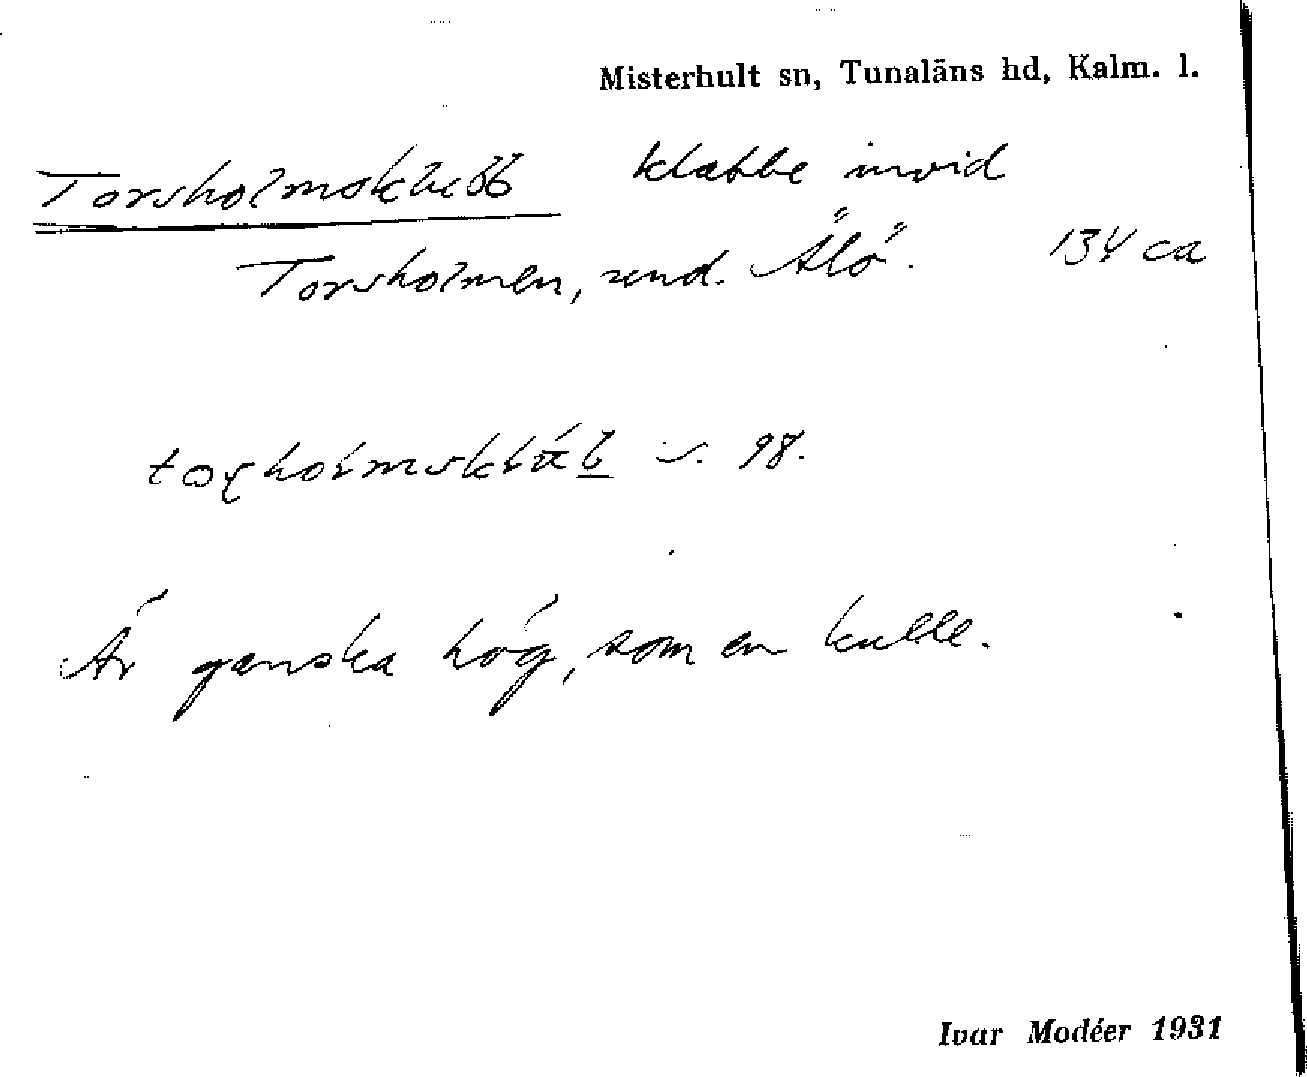 Misterhult sn, Tunaläns hd, Kalm. l.
Torsholmsklabb klabbe invid
Torsholmen, und. Älö. 134 ca
s. 98.
Är ganska hög, som en kulle.
Ivar Modéer 1931